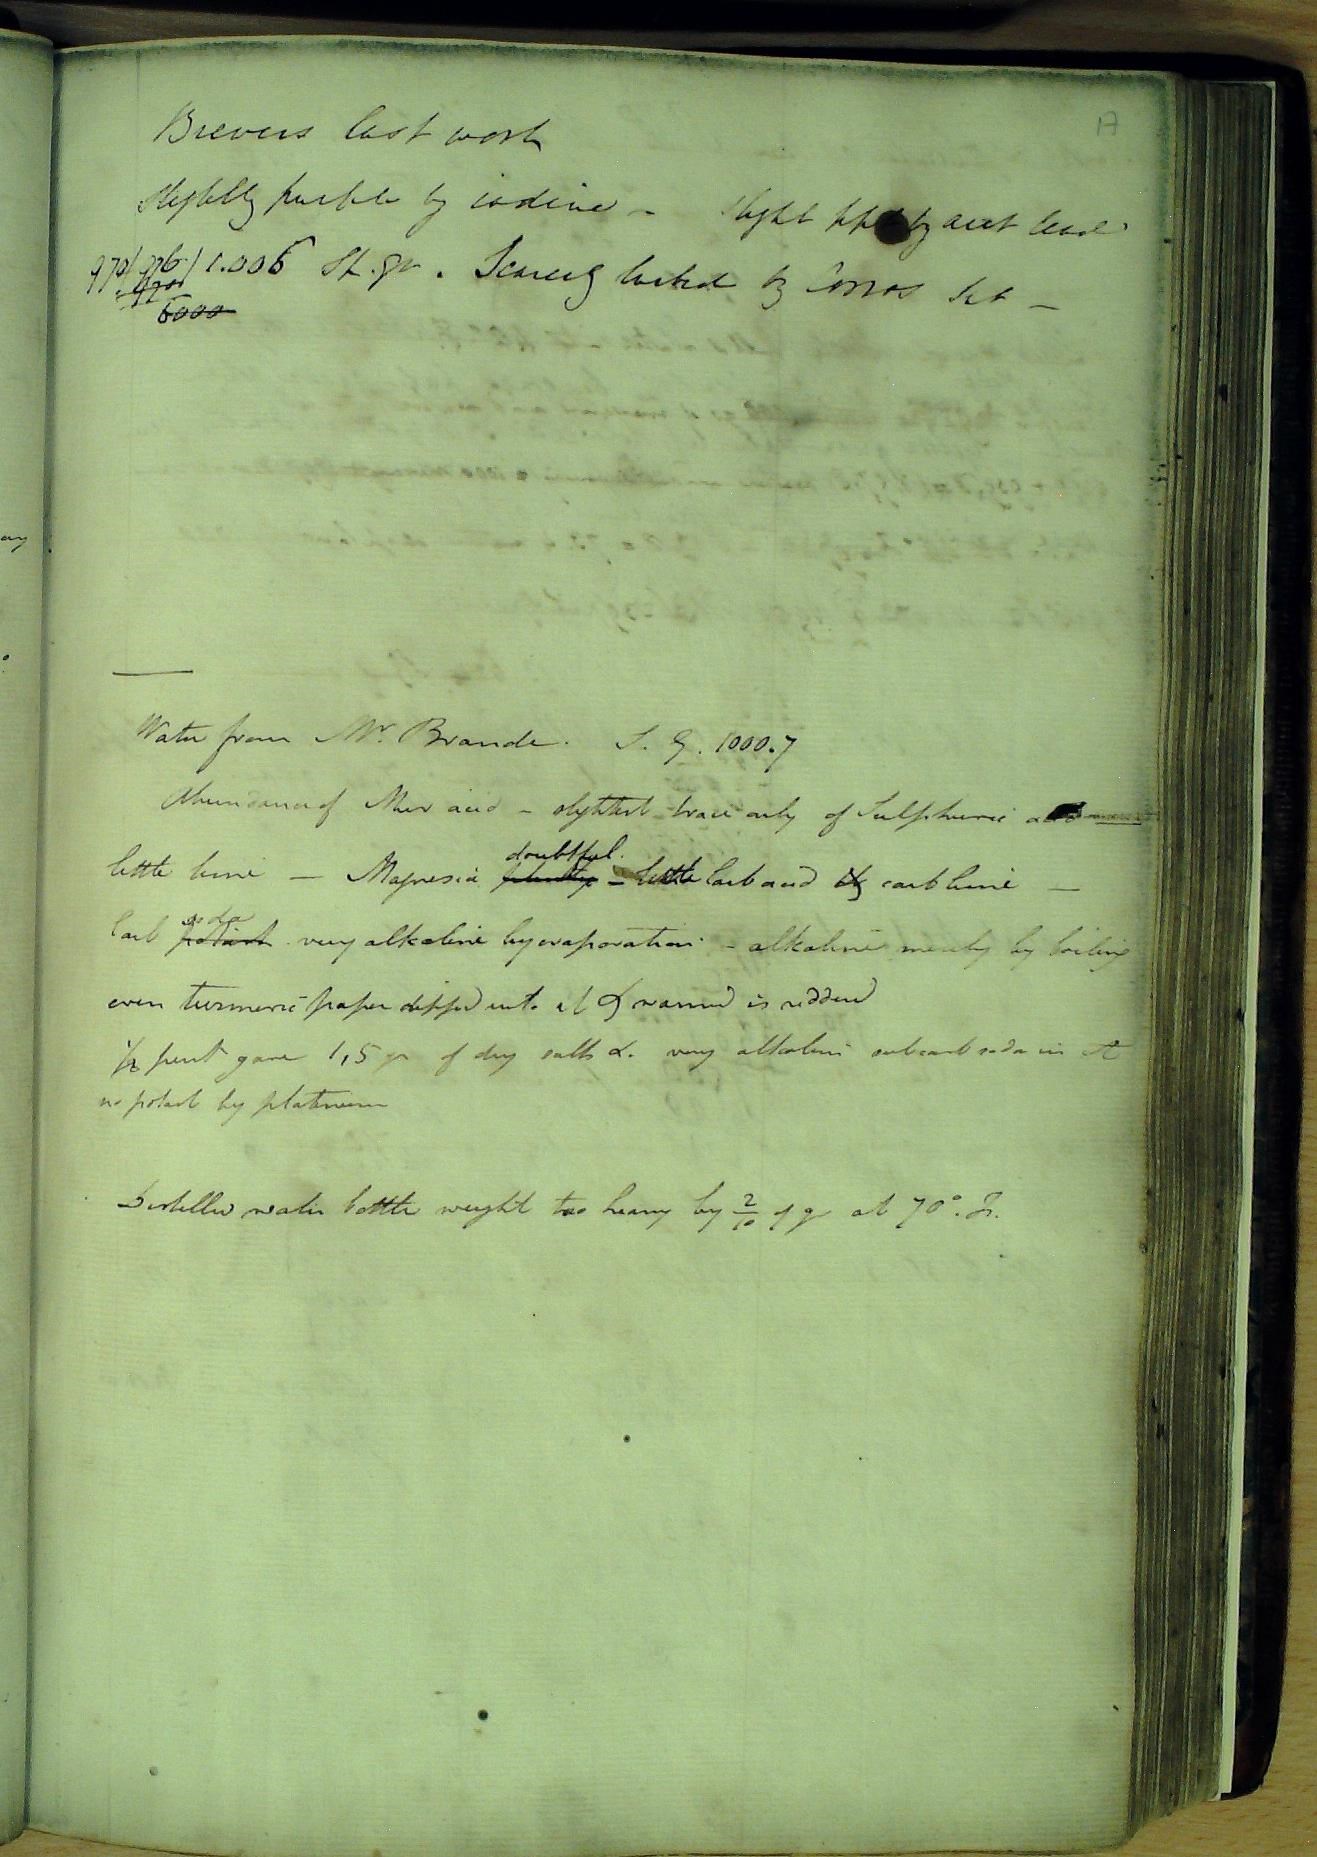 17
Brewers last wort
slightly purple by iodine - slight ppt by acet lead
970/976/1.006 Sp. gr. Scarcely touched by Corros Sub -
6000
Water from Mr. Brande. S. G. 1000.7
Abundance of Mur acid - slightest trace only of Sulphuric acid
little lime - Magnesia plenty doubtful. - little Carb acid & carb lime -
Carb potash soda very alkaline by evaporation - alkaline merely by boiling
even turmeric paper dippd into it & warmd is reddend
1/2 pint gave 1,5 gr of dry salts &. very alkaline subcarb soda in it
no potash by platinum
Distilled water bottle weight too heavy by 2/10 of gr at 70°. F.
any